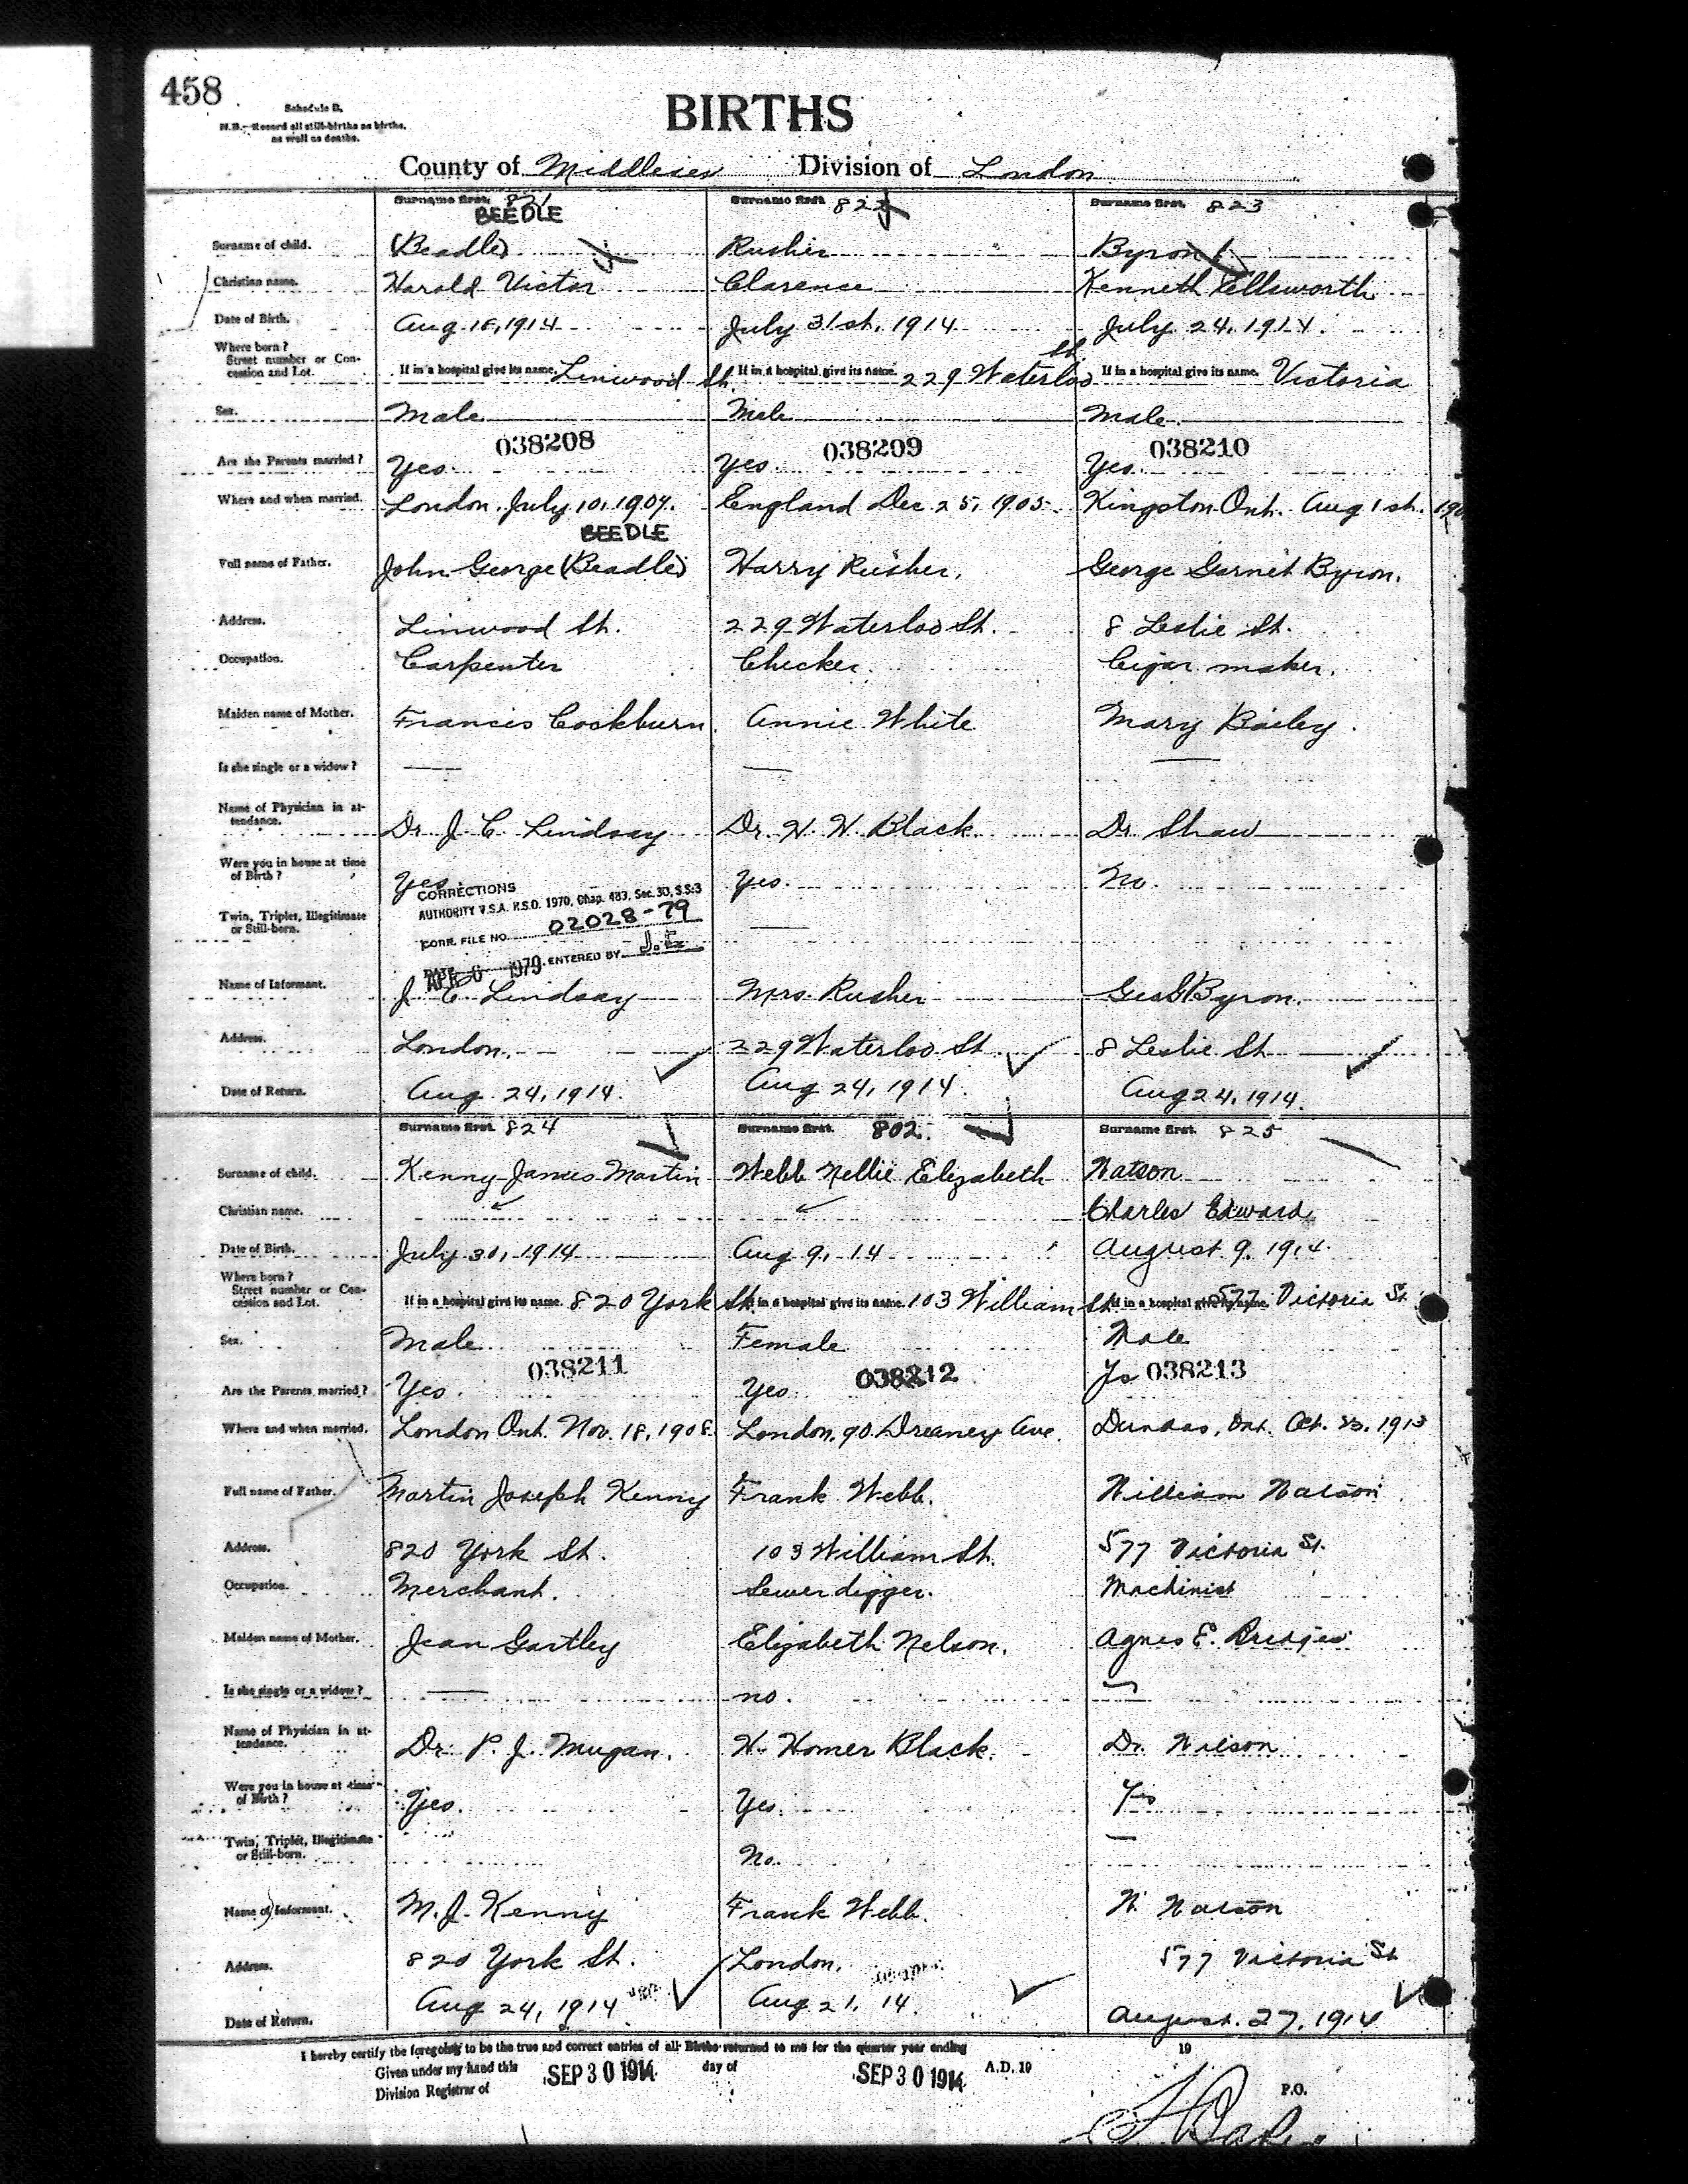 458
Schedule B.
N.B.—Record all still-births as births, as well as deaths.
BIRTHS
County of Middlesex Division of London
Surname first. 821 Surname first. 822 Surname first. 823
BEEDLE
Surname of child. (Beadle) Rusher Byron
Christian name. Harold Victor Clarence Kenneth Ellsworth
Date of Birth. Aug 18, 1914 July 31st, 1914 July 24, 1914.
Where born? Street number or Concession and Lot. If in a hospital give its name. Linwood St. If in a hospital, give its name. 229 Waterloo St If in a hospital give its name. Victoria
Sex. Male Male Male
038208 038209 038210
Are the Parents married? Yes. Yes. Yes.
Where and when married. London. July 10, 1907. England Dec 25, 1905. Kingston Ont. Aug 1st.
BEEDLE
Full name of Father. John George (Beadle) Harry Rusher. George Garnet Byron.
Address. Linwood St. 229 Waterloo St. 8 Leslie St.
Occupation. Carpenter Checker. Cigar maker.
Maiden name of Mother. Francis Cockburn. Annie White Mary Bailey.
Is she single or a widow? — — —
Name of Physician in attendance. Dr. J. C. Lindsay Dr. H. H. Black. Dr Shaw
Were you in house at time of Birth? Yes. Yes. No.
CORRECTIONS
AUTHORITY V.S.A. R.S.O. 1970, Chap. 483, Sec. 30, S.S:3
CORR. FILE NO. 02028-79
DATE APR 1979 ENTERED BY J.E
Twin, Triplet, Illegitimate or Still-born. —
Name of Informant. J. C. Lindsay Mrs. Rusher Geo G Byron.
Address. London. 229 Waterloo St 8 Leslie St
Date of Return. Aug. 24, 1914. Aug 24, 1914. Aug 24, 1914.
Surname first. 824 Surname first. 802. Surname first. 825
Surname of child. Kenny James Martin Webb Nellie Elizabeth Watson
Christian name. Charles Edward
Date of Birth. July 30, 1914 Aug 9, 14 August 9, 1914.
Where born? Street number or Concession and Lot. If in a hospital give its name. 820 York St. If in a hospital give its name. 103 William St. If in a hospital give its name. 577 Victoria St
Sex. Male Female Male
038211 038212 038213
Are the Parents married? Yes. Yes. Ys
Where and when married. London Ont. Nov. 18, 1908. London. 90 Dreaney Ave. Dundas, Ont. Oct. 23. 1913
Full name of Father. Martin Joseph Kenny Frank Webb. William Watson
Address. 820 York St. 103 William St. 577 Victoria St.
Occupation. Merchant. Sewer digger. Machinist
Maiden name of Mother. Jean Gartley Elizabeth Nelson. Agnes E. Bridges
Is she single or a widow? — no. —
Name of Physician in attendance. Dr. P. J. Mugan. H. Homer Black. Dr. Wilson
Were you in house at time of Birth? Yes. Yes. Ys
Twin, Triplet, Illegitimate or Still-born. No. —
Name of Informant. M. J. Kenny Frank Webb. W. Watson
Address. 820 York St. London. 577 Victoria St
Date of Return. Aug 24, 1914 Aug 21, 14. August. 27. 1914
I hereby certify the foregoing to be the true and correct entries of all Births returned to me for the quarter year ending 19
Given under my hand this SEP 30 1914 day of SEP 30 1914 A.D. 19
Division Registrar of P.O.